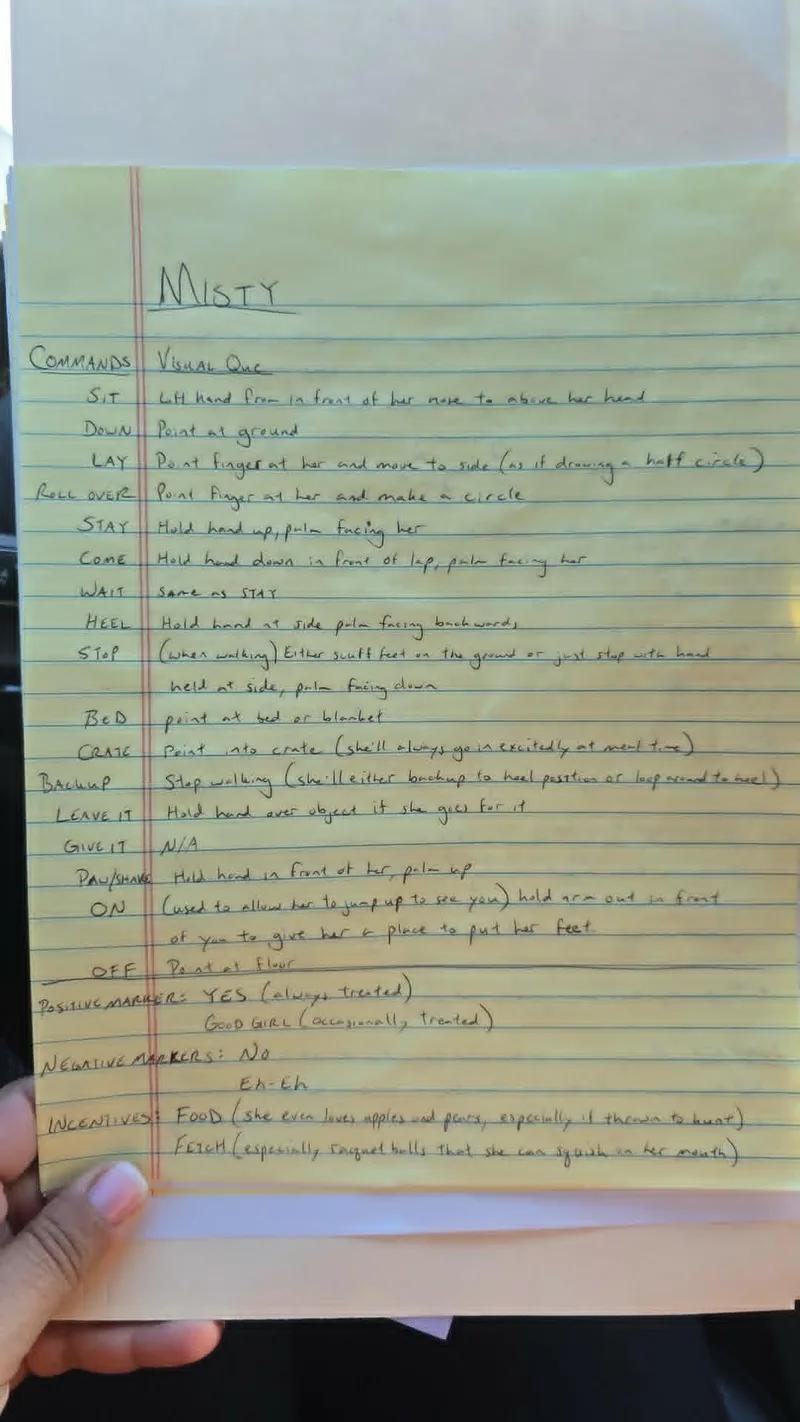 MISTY
COMMANDS VISUAL QUE
SIT Lift hand from in front of her nose to above her head
DOWN Point at ground
LAY Point finger at her and move to side (as if drawing a half circle)
ROLL OVER Point finger at her and make a circle
STAY Hold hand up, palm facing her
COME Hold hand down in front of lap, palm facing her
WAIT same as STAY
HEEL Hold hand at side palm facing backwards
STOP (when walking) Either scuff feet on the ground or just stop with hand
held at side, palm facing down
BED point at bed or blanket
CRATE Point into crate (she'll always go in excitedly at meal time)
BACKUP Stop walking (she'll either backup to heel position or loop around to heel)
LEAVE IT Hold hand over object if she goes for it
GIVE IT N/A
PAW/SHAKE Hold hand in front of her, palm up
ON (used to allow her to jump up to see you) hold arm out in front
of you to give her a place to put her feet.
OFF Point at floor
POSITIVE MARKER: YES (always treated)
GOOD GIRL (occasionally treated)
NEGATIVE MARKERS: NO
EH-EH
INCENTIVES: FOOD (she even loves apples and pears, especially if thrown to hunt)
FETCH (especially racquet balls that she can squish in her mouth)